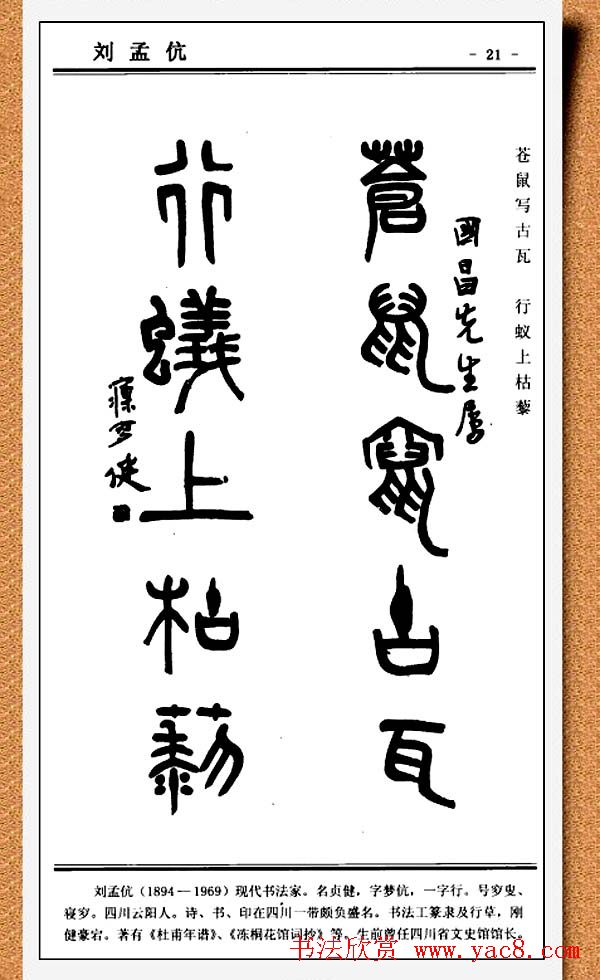 刘孟伉
- 21 -
苍鼠写古瓦 行蚁上枯藜
國昌先生属
蒼鼠竄古瓦
行蟻上枯藜
刘孟伉(1894—1969)现代书法家。名贞健,字梦伉,一字行。号穸叟、
寝穸。四川云阳人。诗、书、印在四川一带颇负盛名。书法工篆隶及行草,刚
健豪宕。著有《杜甫年谱》、《冻桐花馆词抄》等。生前曾任四川省文史馆馆长。
书法欣赏 www.yac8.com